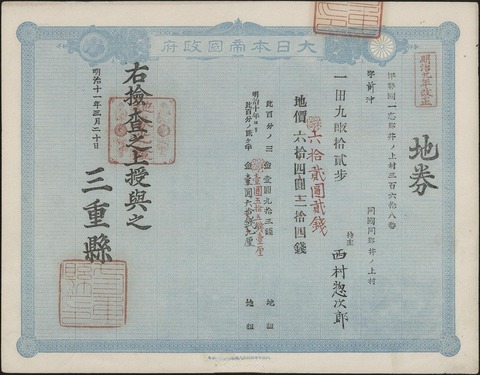 大日本帝國政府
明治九年改正
地券
伊勢國一志郡井ノ上村三百六拾八番
字前沖
同國同郡井ノ上村
一田九畝拾貳歩
持主 西村惣次郎
六拾貳圓貳錢
地價六拾四圓三拾四錢
此百分ノ三 金壹圓九拾三錢 地租
明治十年ヨリ
此百分ノ貳ケ半 金壹圓 地租
右撿査之上授與之
明治十一年三月二十日
三重縣